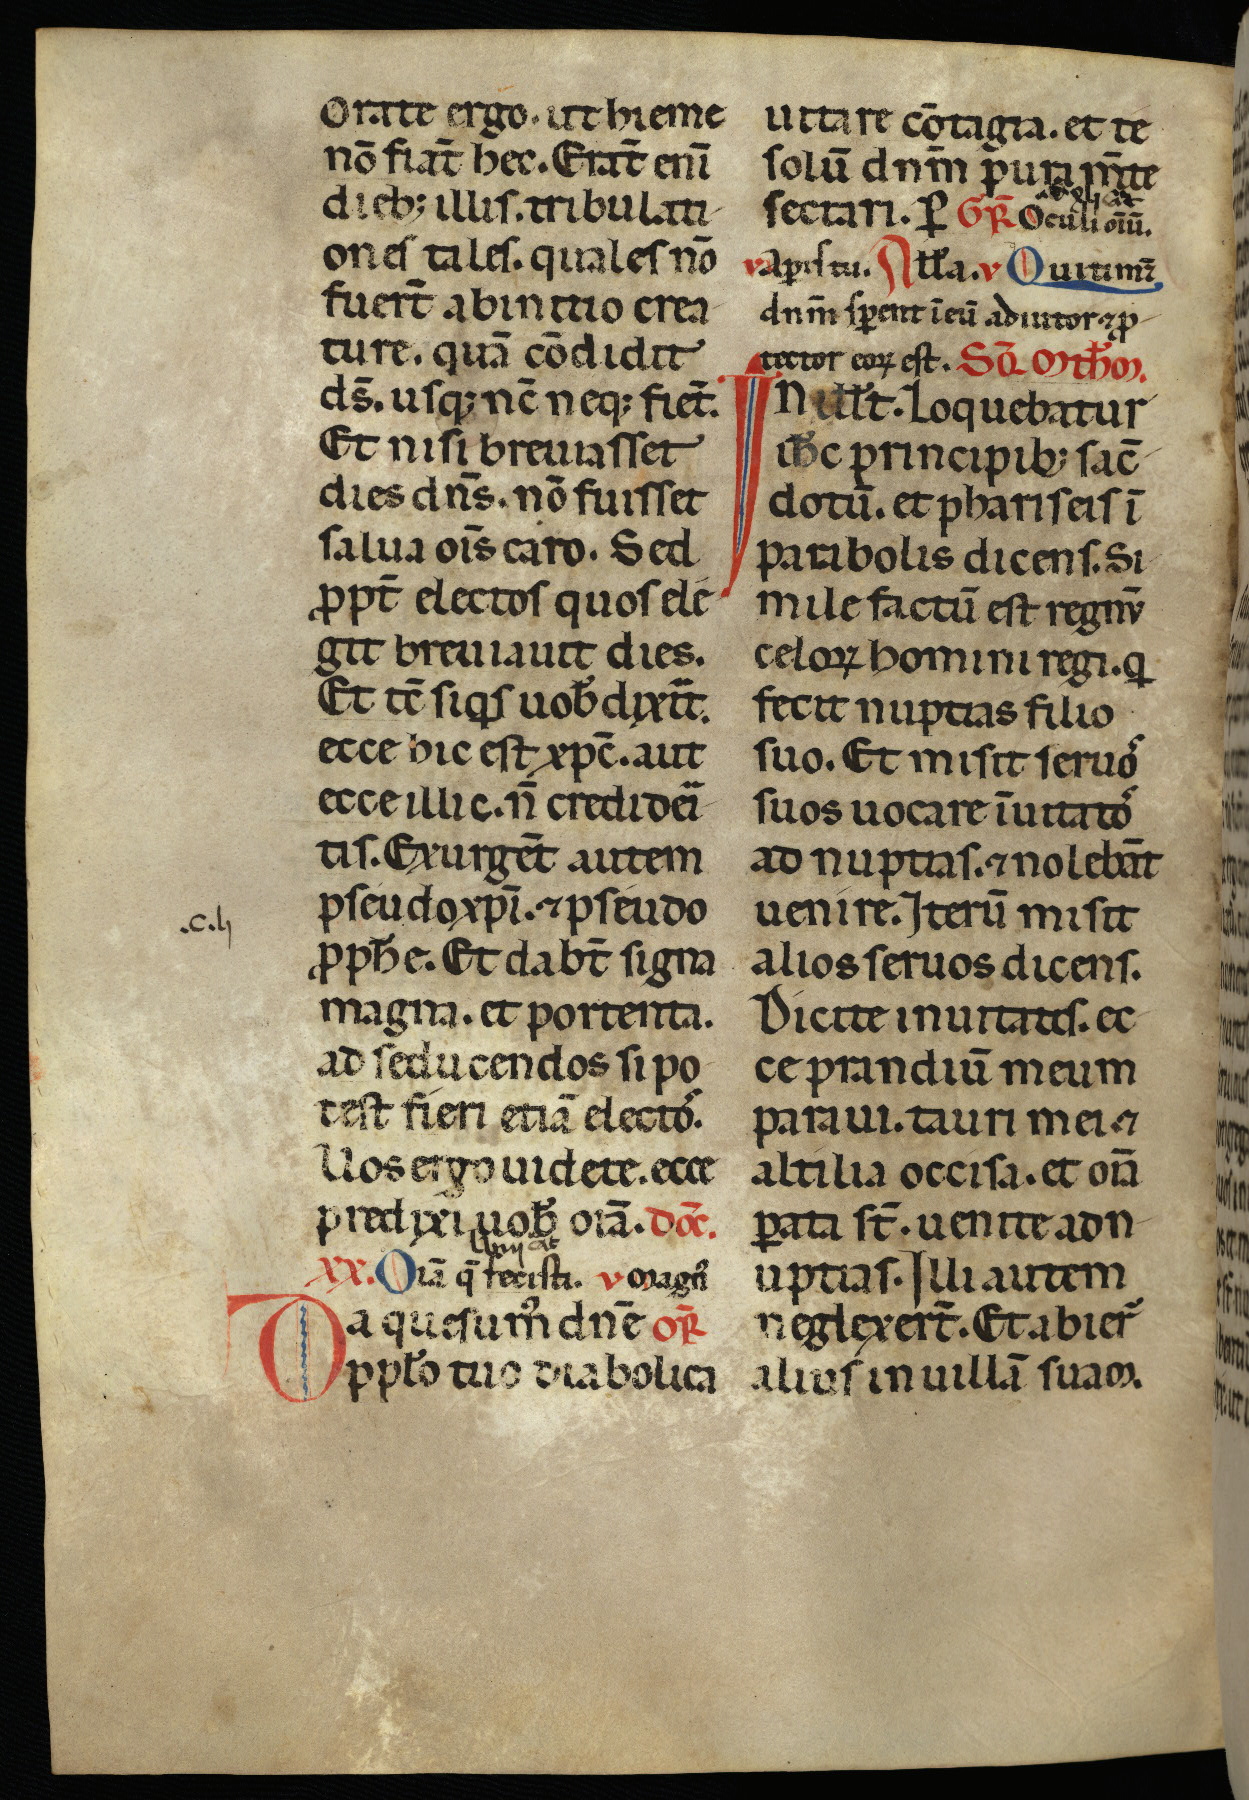 Orate ergo. ut hieme
nō fiāt hec. Erāt enī
dieb; illis. tribulati
ones tales. quales nō
fuerт̄ ab initio crea
ture. quā cōdidit
ds̄. usq; nc̄ neq; fiēt.
Et nisi breuiasset
dies dn̄s. nō fuisset
salua oīs caro. Sed
ꝓpt̄ electos quos ele
git breuiauit dies.
Et tc̄ siqͥs uob̄ dixĩt.
ecce hic est xpc̄. aut
ecce illic. n̄ credidei
tis. Exurgēt autem
pseudo xpī. ⁊ pseudo
ꝓph̄e. Et dabт̄ signa
.c.lj
magna. et portenta.
ad seducendos si po
test fieri etiā electoˢ.
Uos ergo uidete. ecce
predixi uob̄ oīa. dōc.
XX. Oīa q̄ fecisti. v magnꝰ
Da quesumꝰ dn̄e oR̄
pplo tuo diabolica
uitare cōtagia. et te
solū dnm̄ pura m̄te
sectari. ꝑ GR̄ Oculi oīū.
v Aperis tu. All̄a. v Qui timēt
dnm̄ sperent ī eū adiutor ⁊ ꝓ
tector eoꝝ est. Sc̄d. Mth̄m.
IN ill̄t. Loquebatur
ih̄c principib; sac̄
dotū. et phariseis ī
parabolis dicens. Si
mile factū est regnū
celoꝝ homini regi. q
fecit nuptias filio
suo. Et misit seruoˢ
suos uocare īuitatoˢ
ad nuptias. ⁊ nolebāt
uenire. Iterū misit
alios seruos dicens.
Dicite inuitatis. ec
ce prandiū meum
paraui. tauri mei ⁊
altilia occisa. et oīa
ꝑata st̄. uenite ad n
uptias. Illi autem
neglexerт̄. Et abierт̄
alius in uillā suam.